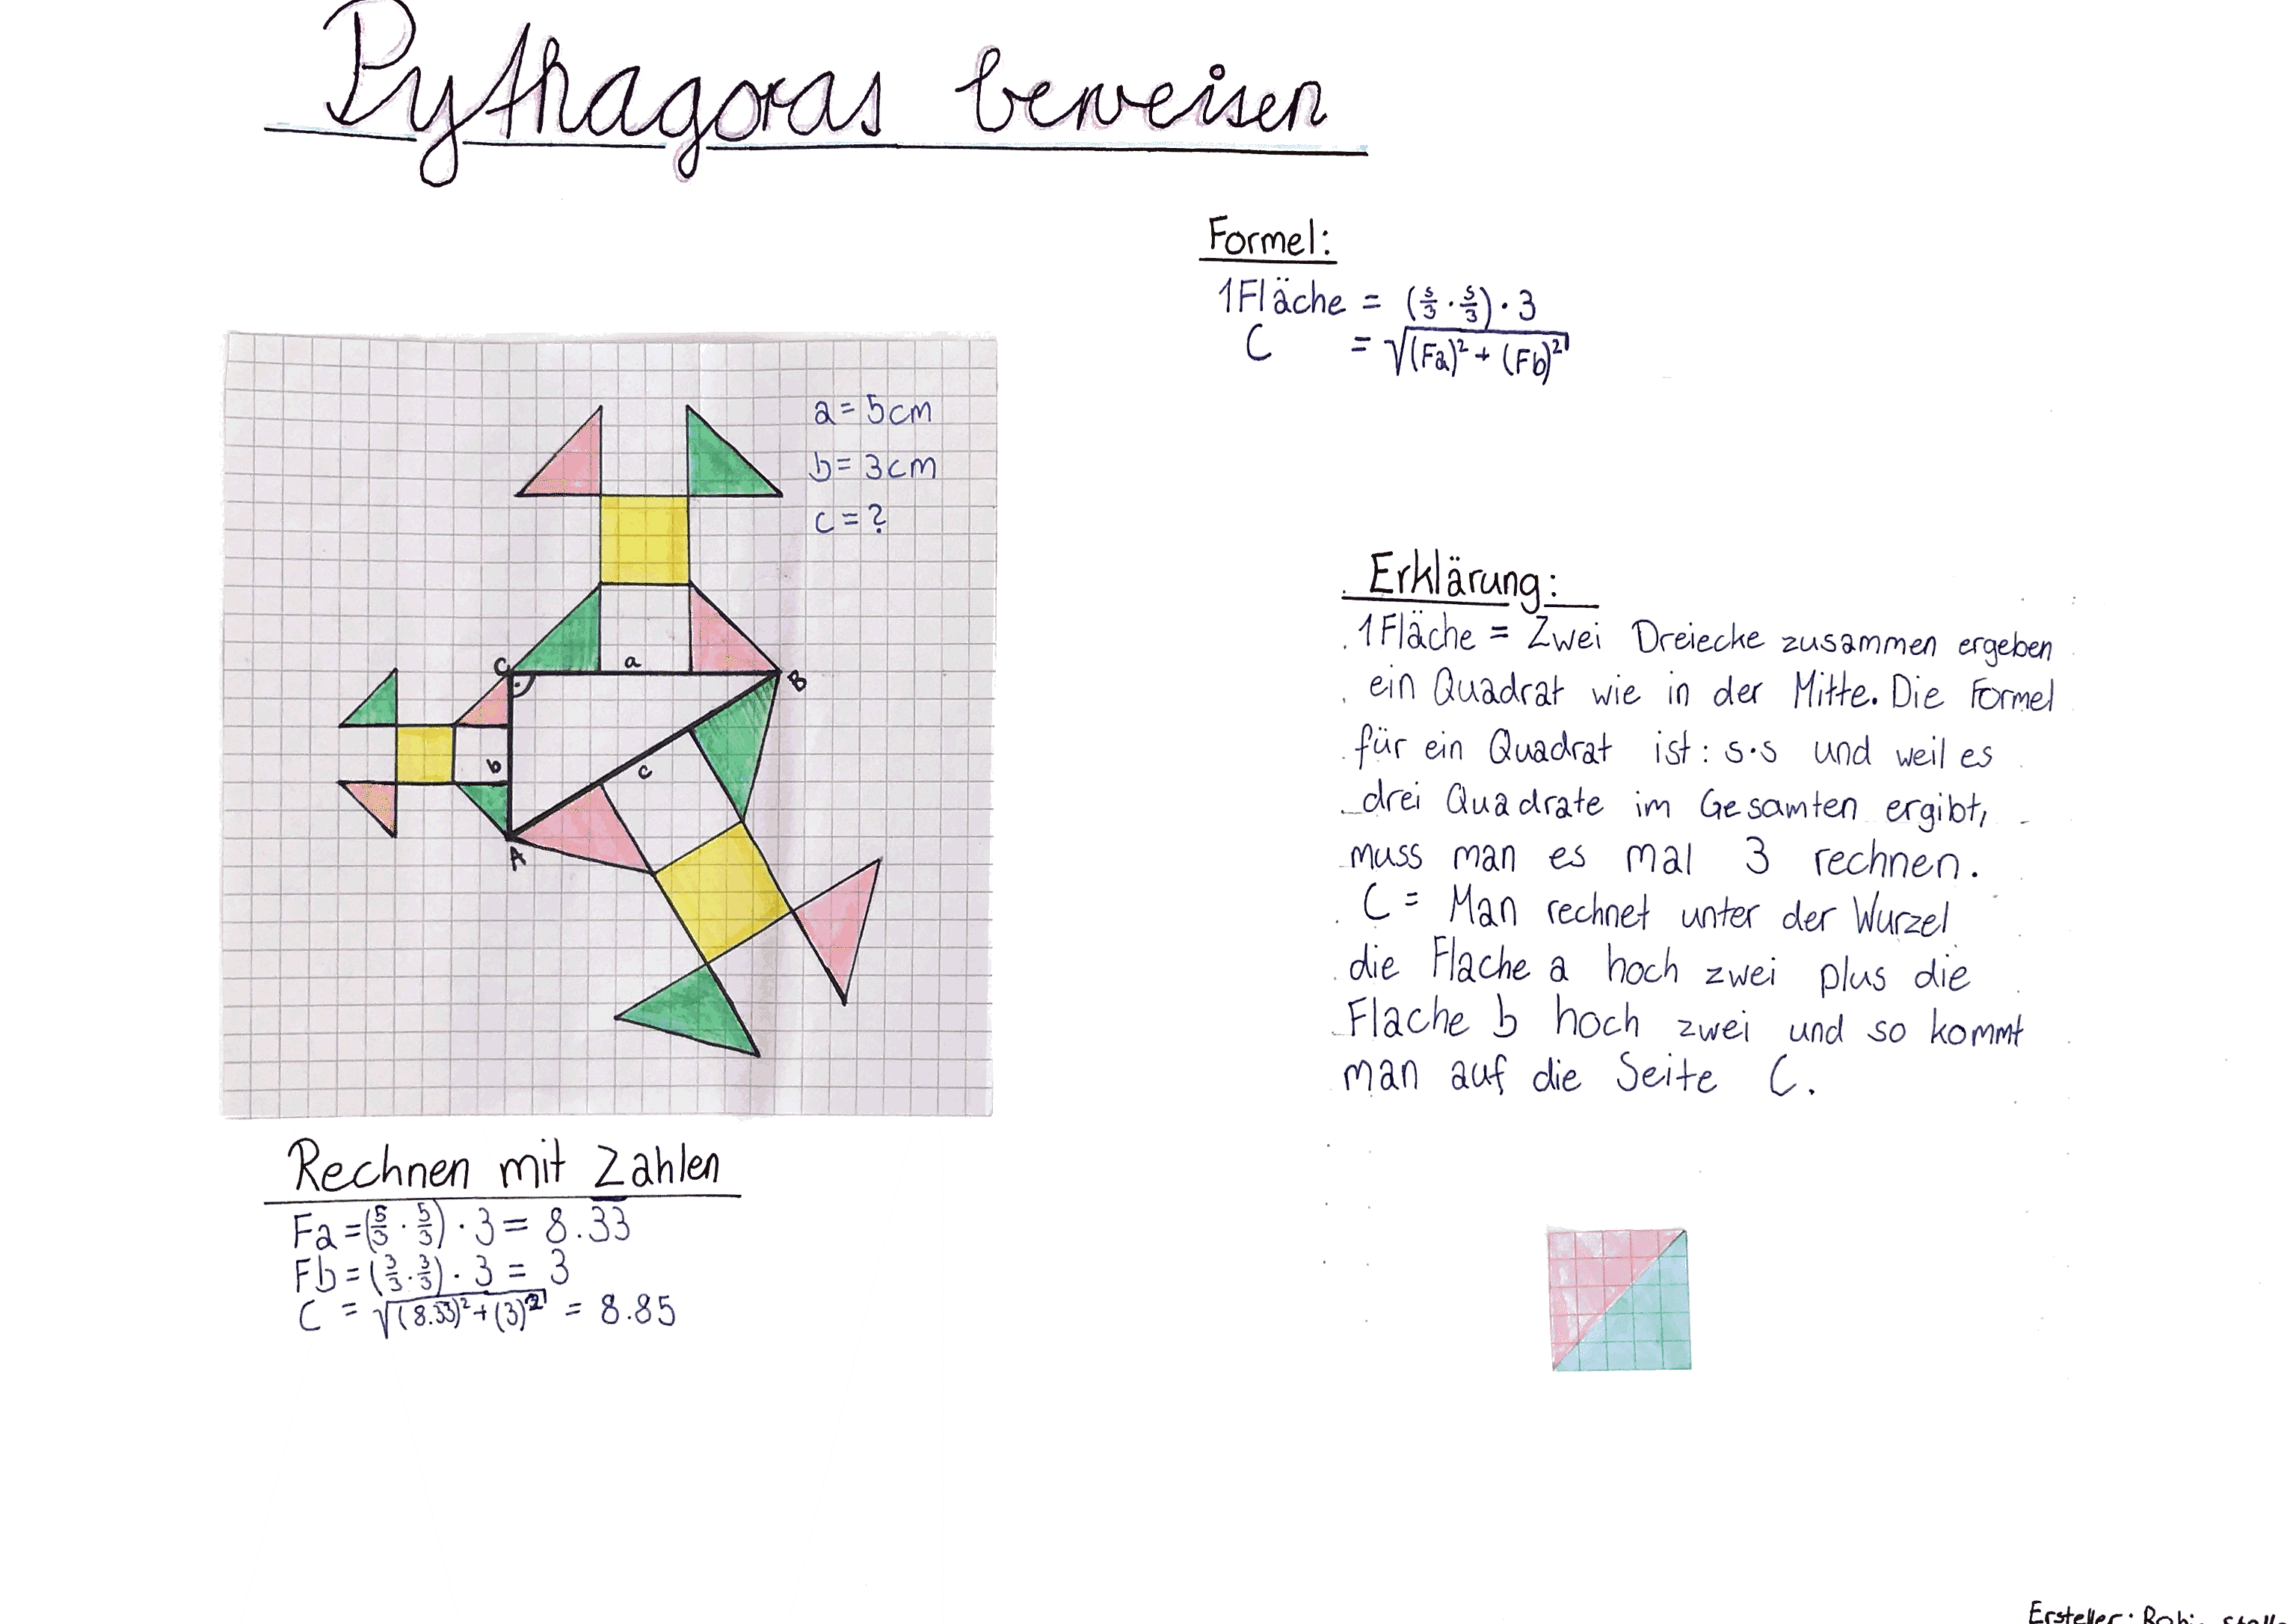 Pythagoras beweisen
Formel:
1 Fläche = (s/3 · s/3) · 3
C = √(Fa)² + (Fb)²
a = 5cm
b = 3cm
c = ?
C
a
B
b
c
A
Erklärung:
1 Fläche = Zwei Dreiecke zusammen ergeben
ein Quadrat wie in der Mitte. Die Formel
für ein Quadrat ist: s·s und weil es
drei Quadrate im Gesamten ergibt,
muss man es mal 3 rechnen.
C = Man rechnet unter der Wurzel
die Flache a hoch zwei plus die
Flache b hoch zwei und so kommt
man auf die Seite C.
Rechnen mit Zahlen
Fa = (5/3 · 5/3) · 3 = 8.33
Fb = (3/3 · 3/3) · 3 = 3
C = √(8.33)² + (3)² = 8.85
Ersteller: